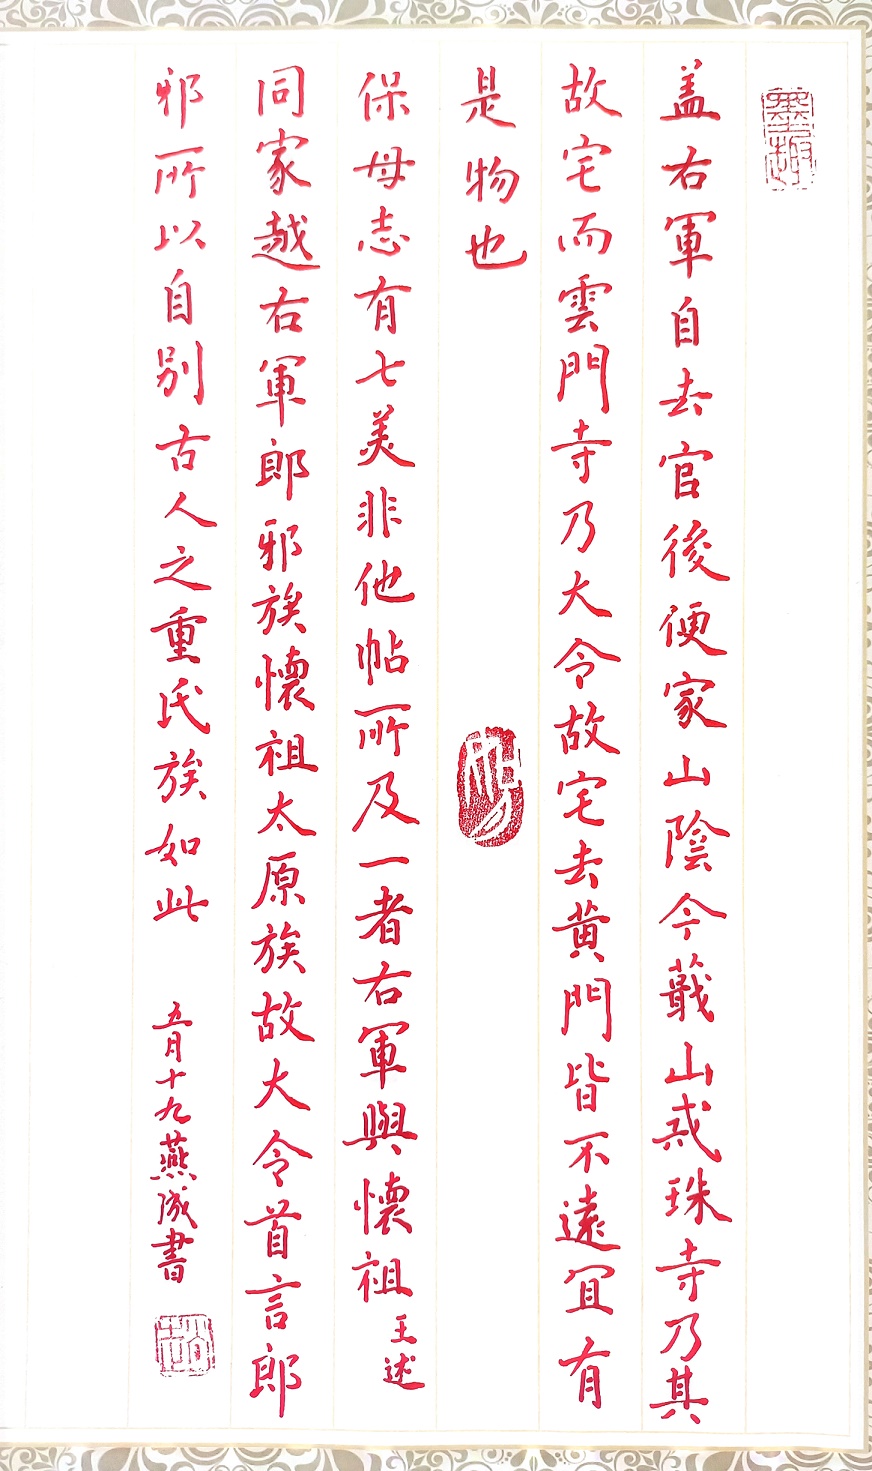 墨趣
盖右軍自去官後便家山陰今蕺山戒珠寺乃其
故宅而雲門寺乃大令故宅去黄門皆不遠宜有
是物也
保母志有七美非他帖所及一者右軍與懷祖王述
同家越右軍郎邪族懷祖太原族故大令首言郎
邪所以自别古人之重氏族如此
五月十九燕 書